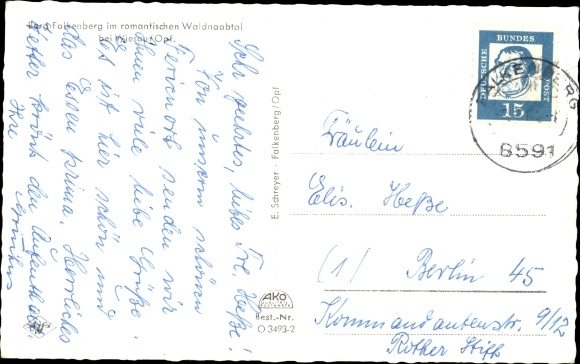 Burg Falkenberg im romantischen Waldnaabtal
bei Wiesau/Opf.
Sehr geehrtes, liebes Frl. Heße!
Von unserm schönen
Ferienort senden wir
Ihnen viele liebe Grüße.
Es ist hier schön und
das Essen prima. Herrliches
Wetter krönt den Aufenthalt.
Ihre
E. Schreyer · Falkenberg/Opf
AKO
Best.-Nr.
O 3493-2
DEUTSCHE BUNDESPOST
15
FALKENBERG
8591
Fräulein
Elis. Heße
(1) Berlin 45
Kommandantenstr. 9/12
Rother Stift